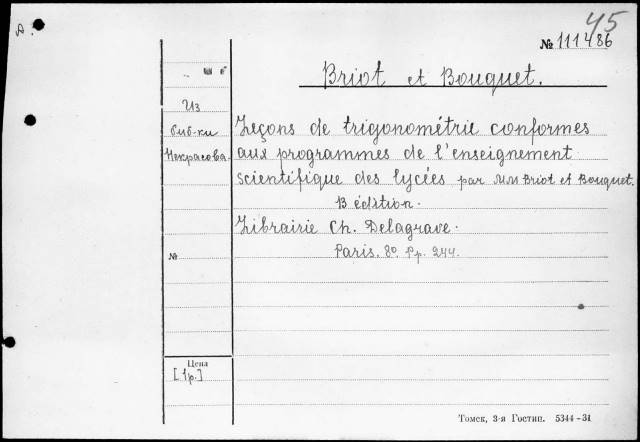 45
A.
№ 111486
Briot et Bouquet.
Из
биб-ки
Некрасова.
Leçons de trigonométrie conformes
aux programmes de l'enseignement
scientifique des lycées par MM Briot et Bouquet.
13 édition.
Librairie Ch. Delagrave.
Paris. 8º. Pp. 244.
№
Цена
[1 р.]
Томск, 3-я Гостип. 5344-31